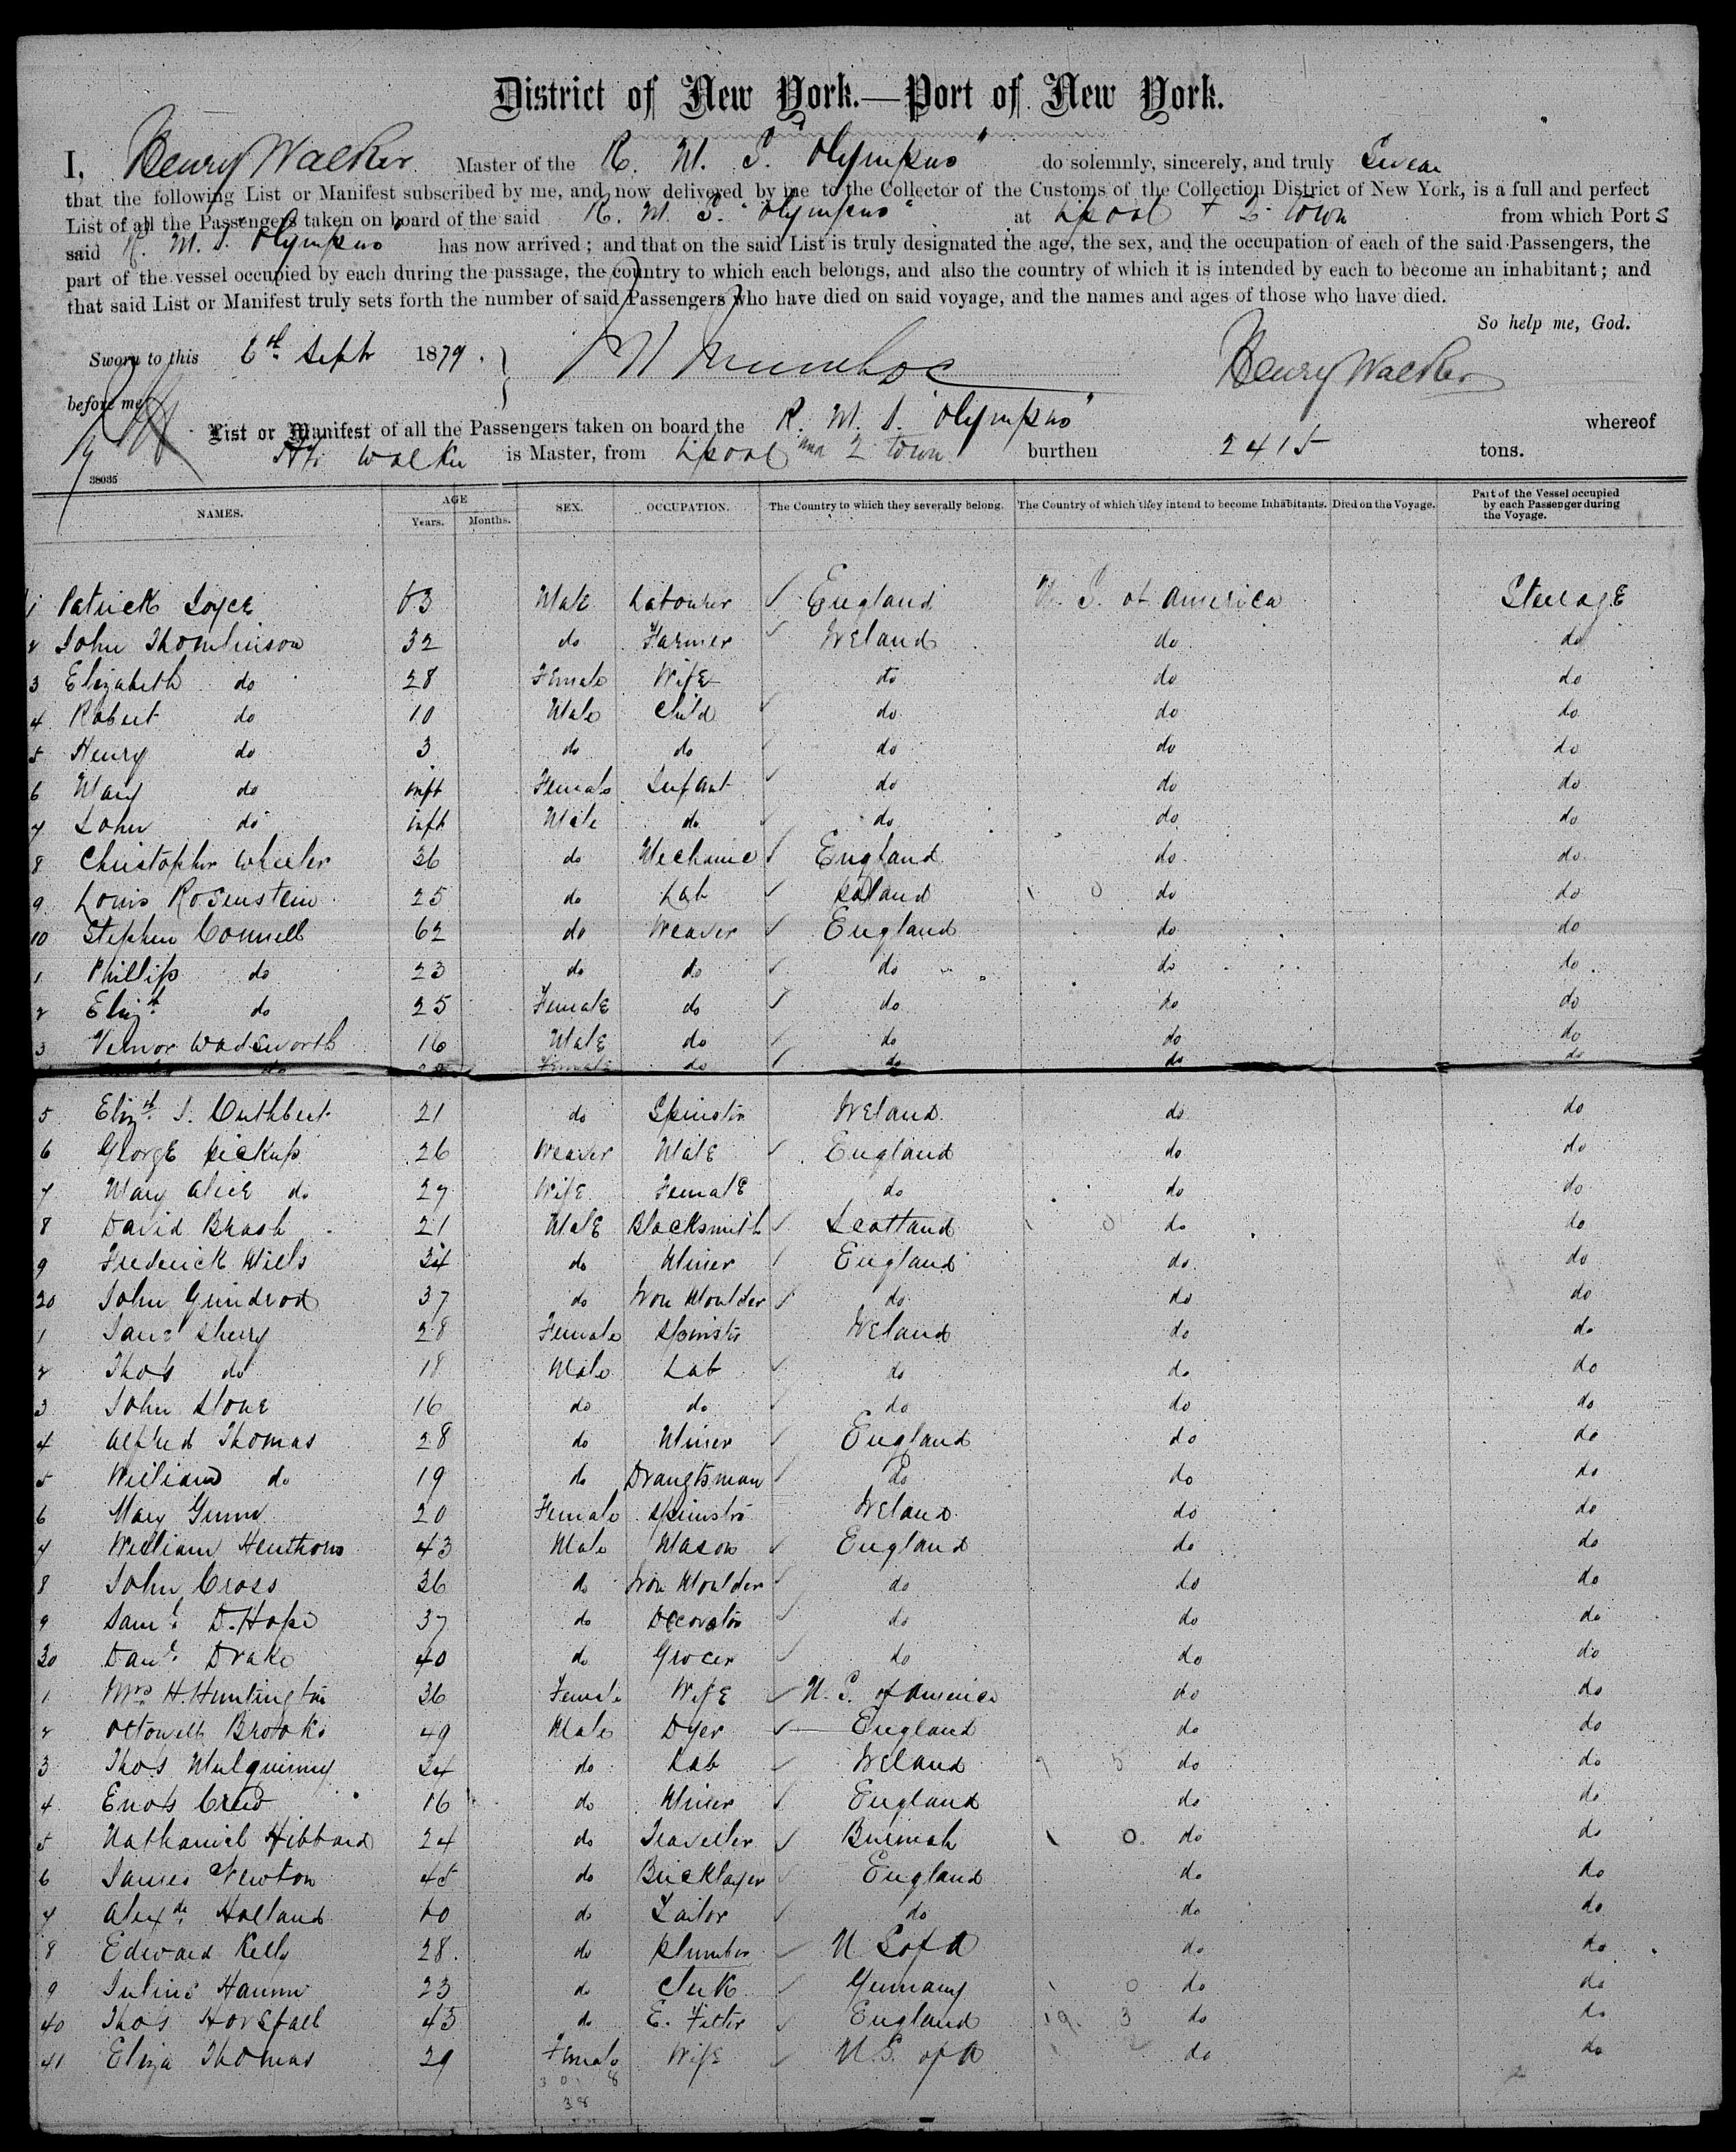 District of New York.—Port of New York.
I, Henry Walker Master of the R. M. S. "Olympus" do solemnly, sincerely, and truly Swear
that the following List or Manifest subscribed by me, and now delivered by me to the Collector of the Customs of the Collection District of New York, is a full and perfect
List of all the Passengers taken on board of the said R. M. S. "Olympus" at Lpool + Q. Town from which Ports
said R. M. S. Olympus has now arrived; and that on the said List is truly designated the age, the sex, and the occupation of each of the said Passengers, the
part of the vessel occupied by each during the passage, the country to which each belongs, and also the country of which it is intended by each to become an inhabitant; and
that said List or Manifest truly sets forth the number of said Passengers who have died on said voyage, and the names and ages of those who have died.
So help me, God.
Sworn to this 6th Sept 1879. Henry Walker
before me
List or Manifest of all the Passengers taken on board the R. M. S. "Olympus" whereof
Walker is Master, from Lpool and Q town burthen 2415 tons.
38035
NAMES. AGE Years. Months. SEX. OCCUPATION. The Country to which they severally belong. The Country of which they intend to become Inhabitants. Died on the Voyage. Part of the Vessel occupied by each Passenger during the Voyage.
1 Patrick Joyce 63 Male Labourer England U. S. of America Steerage
2 John Thomlinson 32 do Farmer Ireland do do
3 Elizabeth do 28 Female Wife do do do
4 Robert do 10 Male Child do do do
5 Henry do 3 do do do do do
6 Mary do inft Female Infant do do do
7 John do inft Male do do do do
8 Christopher Wheeler 36 do Mechanic England do do
9 Louis Rosenstein 25 do Lab Poland do do
10 Stephen Connell 62 do Weaver England do do
1 Phillip do 23 do do do do do
2 Elizth do 25 Female do do do do
3 Vernor Wadsworth 16 Male do do do do
do Female do do do do
5 Elizth J. Cuthbert 21 do Spinster Ireland do do
6 George Pickup 26 Weaver Male England do do
7 Mary Alice do 27 Wife Female do do do
8 David Brash 21 Male Blacksmith Scotland do do
9 Frederick Mills 34 do Miner England do do
20 John Grindrod 37 do Iron Moulder do do do
1 Jane Sherry 28 Female Spinster Ireland do do
2 Thos do 18 Male Lab do do do
3 John Stone 16 do do do do do
4 Alfred Thomas 28 do Miner England do do
5 William do 19 do Draugtsman do do do
6 Mary Gunn 20 Female Spinster Ireland do do
7 William Henthorn 43 Male Mason England do do
8 John Cross 36 do Iron Moulder do do do
9 Saml. D. Hope 37 do Decorator do do do
30 Danl. Drake 40 do Grocer do do do
1 Mrs H. Huntington 36 Female Wife U. S. of America do do
2 Ottowell Brooks 49 Male Dyer England do do
3 Thos Mulquinny 24 do Lab Ireland do do
4 Enos Crew 16 do Miner England do do
5 Nathaniel Hibbard 24 do Traveller Burmah do do
6 James Newton 45 do Bricklayer England do do
7 Alexdr. Holland 60 do Tailor do do do
8 Edward Kelly 28 do Plumber U S of A do do
9 Julius Hamm 23 do Clerk Germany do do
40 Thos Horsfall 43 do E. Fitter England do do
41 Eliza Thomas 29 Female Wife U. S. of A do do
30 8
38